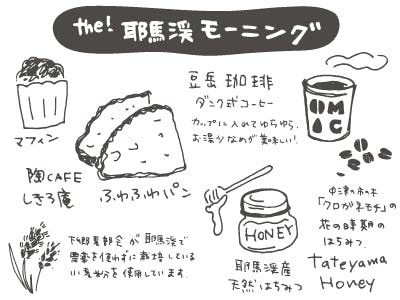 the! 耶馬渓モーニング
マフィン
陶CAFE
しきろ庵
ふわふわパン
豆岳珈琲
ダンク式コーヒー
カップに入れてゆらゆら。
お湯少なめが美味しい!
OM
&C
中津の市の木
「クロガネモチ」の
花の時期の
はちみつ。
Tateyama
Honey
HONEY
耶馬渓産
天然はちみつ
下郷農部会が耶馬渓で
農薬を使わずに栽培している
小麦粉を使用しています。